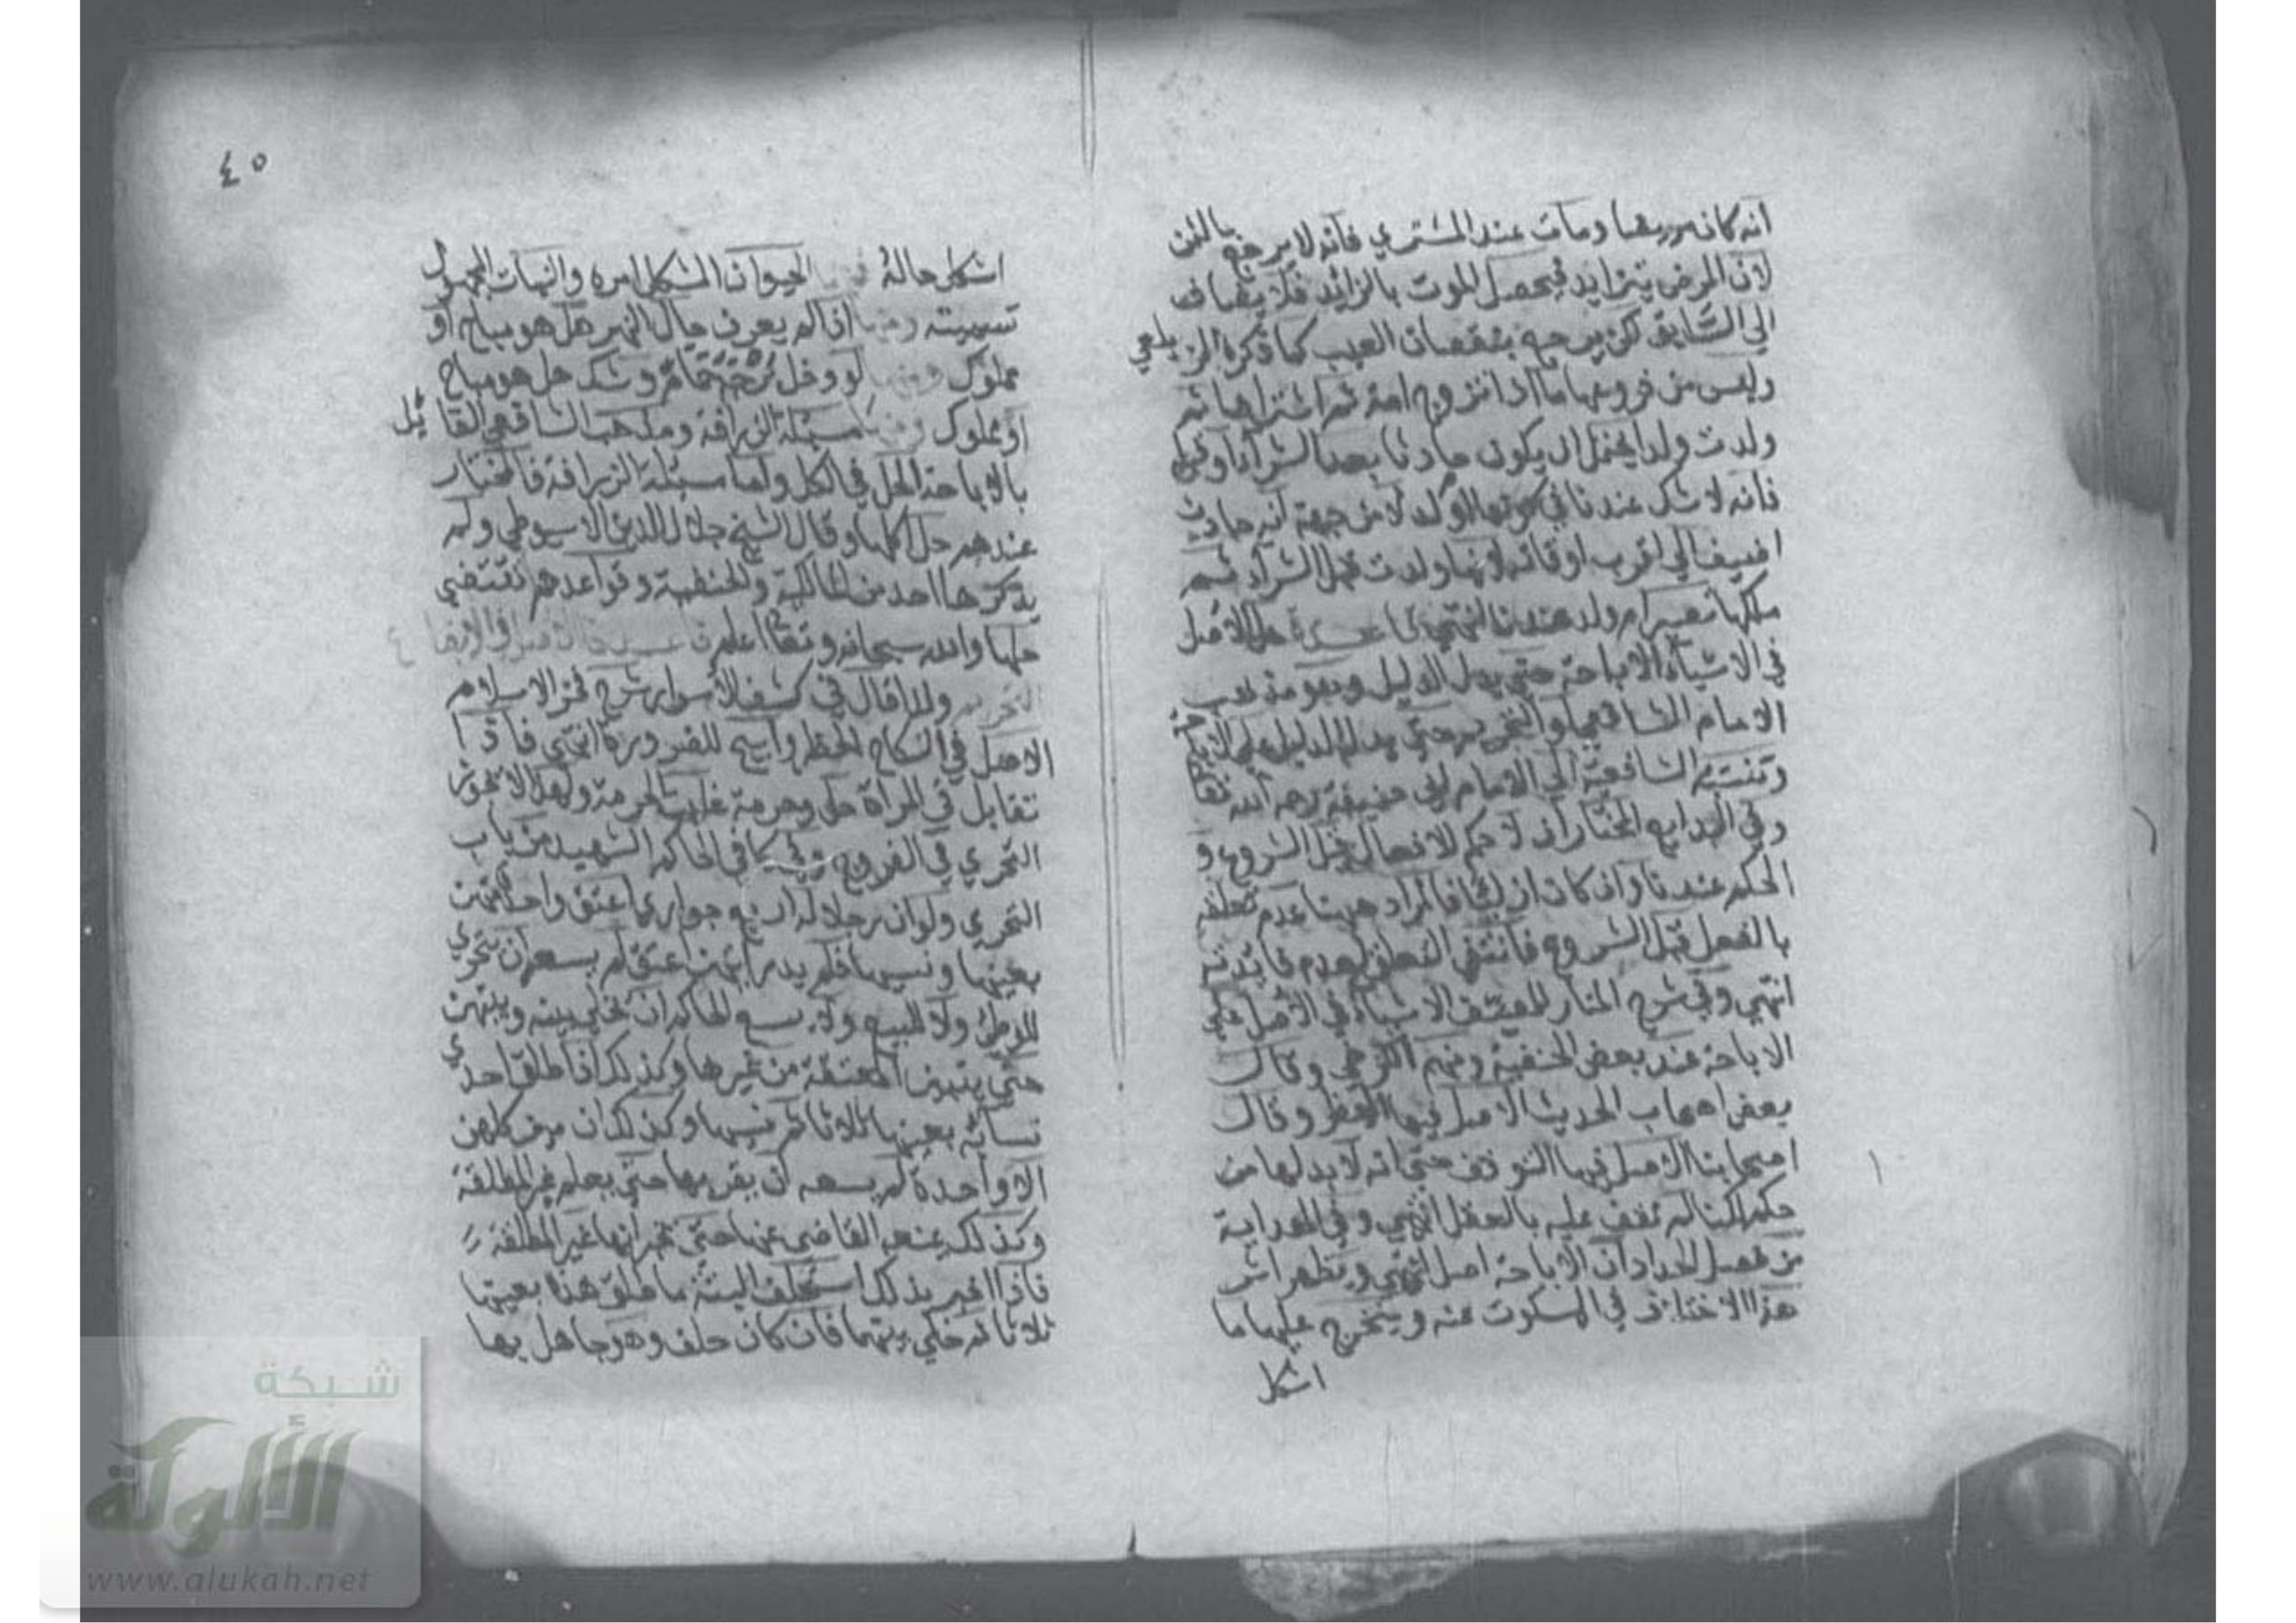 انه كان مريضا ومات عند المشتري فانه لا يرجع بالثمن
لان المرض يتزايد فيحصل الموت بالزائد فلا يضاف
الي السابق لكن يرجع بنقصان العيب كما ذكره الزيلعي
وليس من فروعها ما اذا تزوج امة ثم اشتراها ثم
ولدت ولدا يحتمل ان يكون حادثا بعد الشرآء او قبله
فانه لا شك عندنا في كونها ام ولد لا من جهة انه حادث
اضيف الي اقرب اوقاته لانها ولدت قبل الشرآء ثم
ملكها تصير ام ولد عندنا انتهي قاعدة هل الاصل
في الاشيآء الاباحة حتي يدل الدليل وهو مذهب
الامام الشافعي او التحريم حتي يدل الدليل علي الاباحة
وتنسبه الشافعية الي الامام ابي حنيفة رحمه الله تعالي
وفي البدايع المختار ان لا حكم للافعال قبل الشروع و
الحكم عندنا وان كان ازليا فالمراد ههنا عدم تعلقه
بالفعل قبل الشروع فانتفي التعلق لعدم فايدته
انتهي وفي شرح المنار للمصنف الاشيآء في الاصل علي
الاباحة عند بعض الحنفية ومنهم الكرخي وقال
بعض اصحاب الحديث الاصل فيها الحظر وقال
اصحابنا الاصل فيها التوقف حتي انه لا بد لها من
حكم لكنا لم نقف عليه بالعقل انتهي وفي الهداية
من فصل الحداد ان الاباحة اصل انتهي ويظهر اثر
هذا الاختلاف في المسكوت عنه ويتخرج عليها ما
اشكل
٤٥
اشكل حاله الحيوان المشكل امره والنبات المجهول
تسميته ومنها اذا لم يعرف حال النهر هل هو مباح او
مملوك ومنها لو دخل برجه حمام وشك هل هو مباح
او مملوك ومنها مسئلة الزرافة ومذهب الشافعي القائل
بالاباحة الحل في الكل واما مسئلة الزرافة فالمختار
عندهم حل اكلها وقال الشيخ جلال الدين الاسيوطي ولم
يذكرها احد من المالكية والحنفية وقواعدهم تقتضي
حلها والله سبحانه وتعالي اعلم الاصل في الابضاع
التحريم ولذا قال في كشف الاسرار شرح فخر الاسلام
الاصل في النكاح الحظر وابيح للضرورة انتهي فاذا
تقابل في المرأة حل وحرمة غلبت الحرمة ولهذا لا يجوز
التحري في الفروج وفي كافي الحاكم الشهيد من باب
التحري ولو ان رجلا له اربع جواري اعتق واحدة منهن
بعينها ونسيها فلم يدر ايتهن اعتق لم يسعه ان يتحري
للوطئ ولا للبيع ولا يسع للحاكم ان يخلي بينه وبينهن
حتي يتبين المعتقة من غيرها وكذلك اذا طلق احدي
نسائه بعينها ثلاثا ثم نسيها وكذلك ان مرت كلهن
الا واحدة لم يسعه ان يقربها حتي يعلم غير المطلقة
وكذلك يمنعه القاضي عنها حتي يخبر انها غير المطلقة
فاذا اخبر بذلك استحلف البتة ما طلق هذه بعينها
ثلاثا ثم خلي بينهما فان كان حلف وهو جاهل بها
شبكة
الألوكة
www.alukah.net